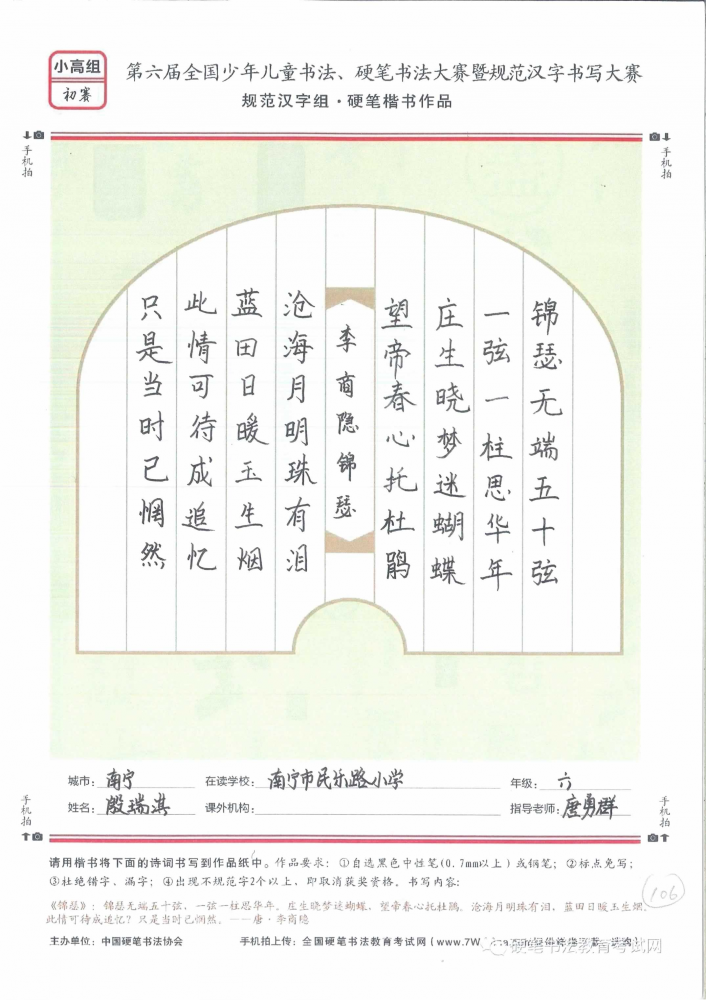 小高组
初赛
第六届全国少年儿童书法、硬笔书法大赛暨规范汉字书写大赛
规范汉字组·硬笔楷书作品
手机拍
手机拍
锦瑟无端五十弦
一弦一柱思华年
庄生晓梦迷蝴蝶
望帝春心托杜鹃
李商隐锦瑟
沧海月明珠有泪
蓝田日暖玉生烟
此情可待成追忆
只是当时已惘然
城市：南宁 在读学校：南宁市民乐路小学 年级：六
姓名：殷瑞淇 课外机构： 指导老师：庹勇群
手机拍
手机拍
请用楷书将下面的诗词书写到作品纸中。作品要求：①自选黑色中性笔(0.7mm以上)或钢笔；②标点免写；
③杜绝错字、漏字；④出现不规范字2个以上，即取消获奖资格。书写内容：
106
《锦瑟》：锦瑟无端五十弦，一弦一柱思华年。庄生晓梦迷蝴蝶，望帝春心托杜鹃。沧海月明珠有泪，蓝田日暖玉生烟。
此情可待成追忆？只是当时已惘然。——唐·李商隐
主办单位：中国硬笔书法协会 手机拍上传：全国硬笔书法教育考试网(www.7W
硬笔书法教育考试网